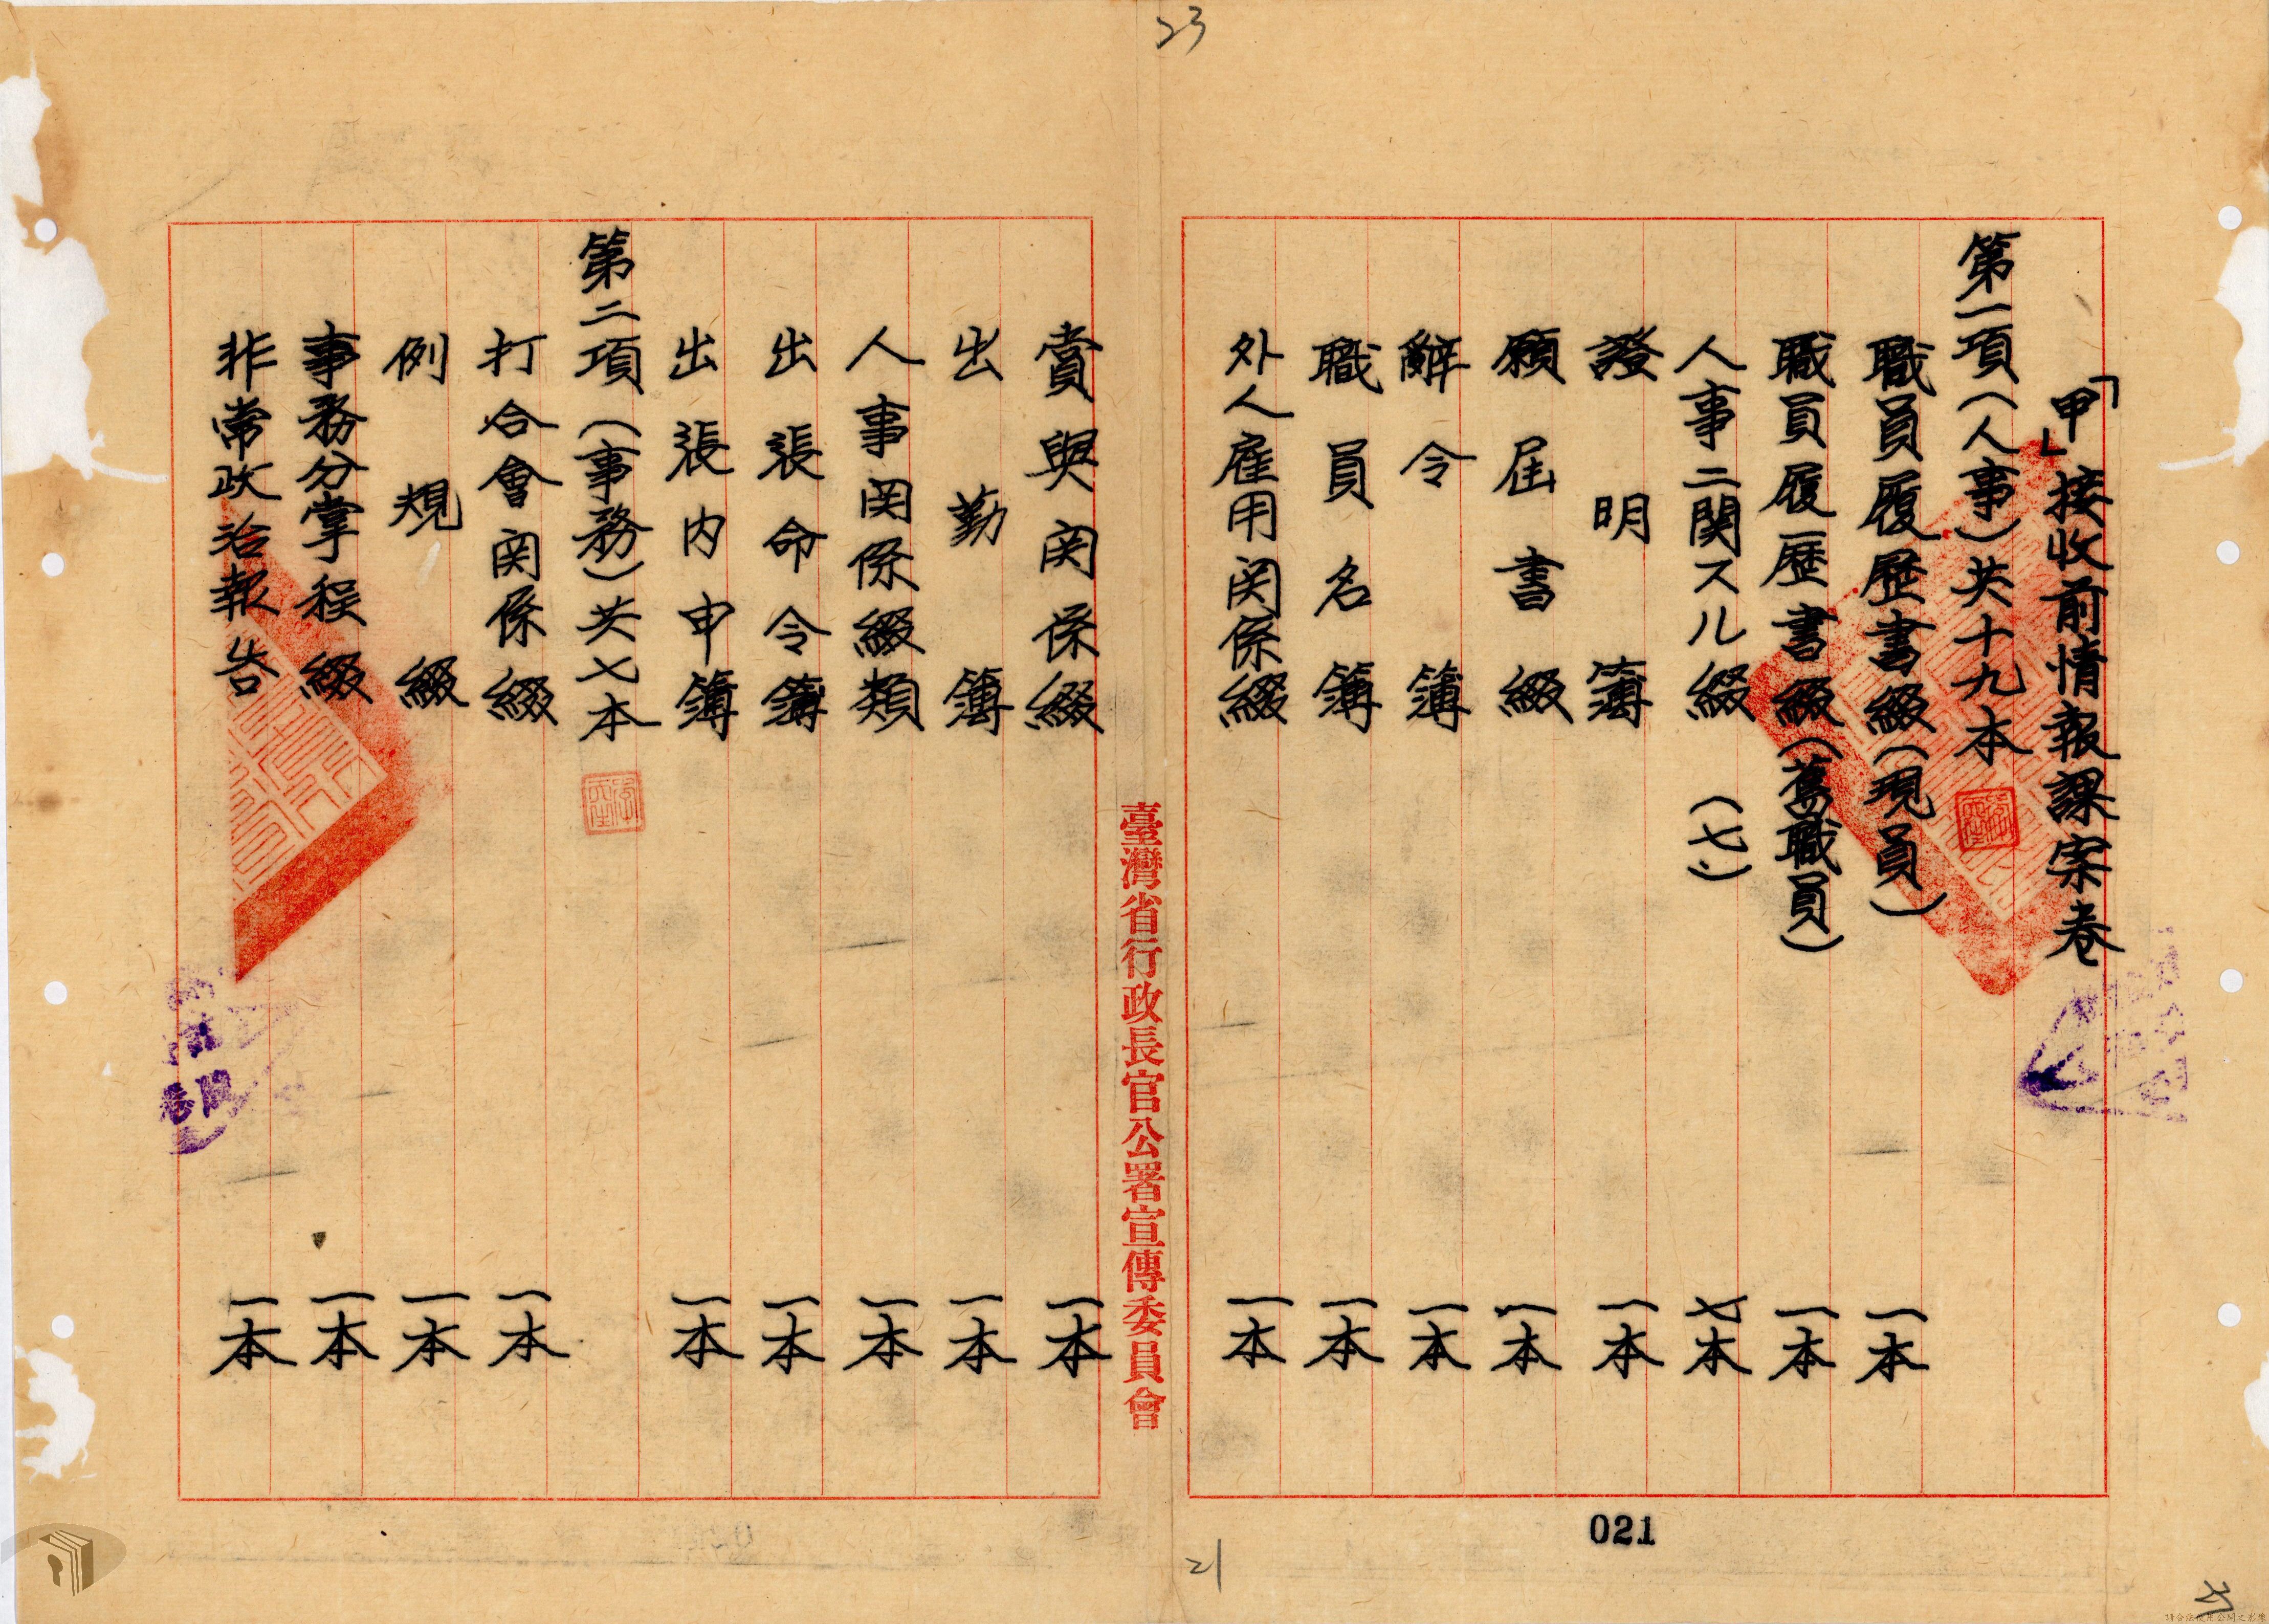 23
「甲」接收前情報課案卷
第一項(人事)共十九本
職員履歷書綴(現員) 一本
職員履歷書綴(舊職員) 一本
人事ニ関スル綴 (七) 七本
證明簿 一本
願屆書綴 一本
辭令簿 一本
職員名簿 一本
外人雇用関係綴 一本
臺灣省行政長官公署宣傳委員會
賞與関係綴 一本
出勤簿 一本
人事関係綴類 一本
出張命令簿 一本
出張内申簿 一本
第二項(事務)共七本
打合會関係綴 一本
例規綴 一本
事務分掌程綴 一本
非常政治報告 一本
021
21
請合法使用公開之影像